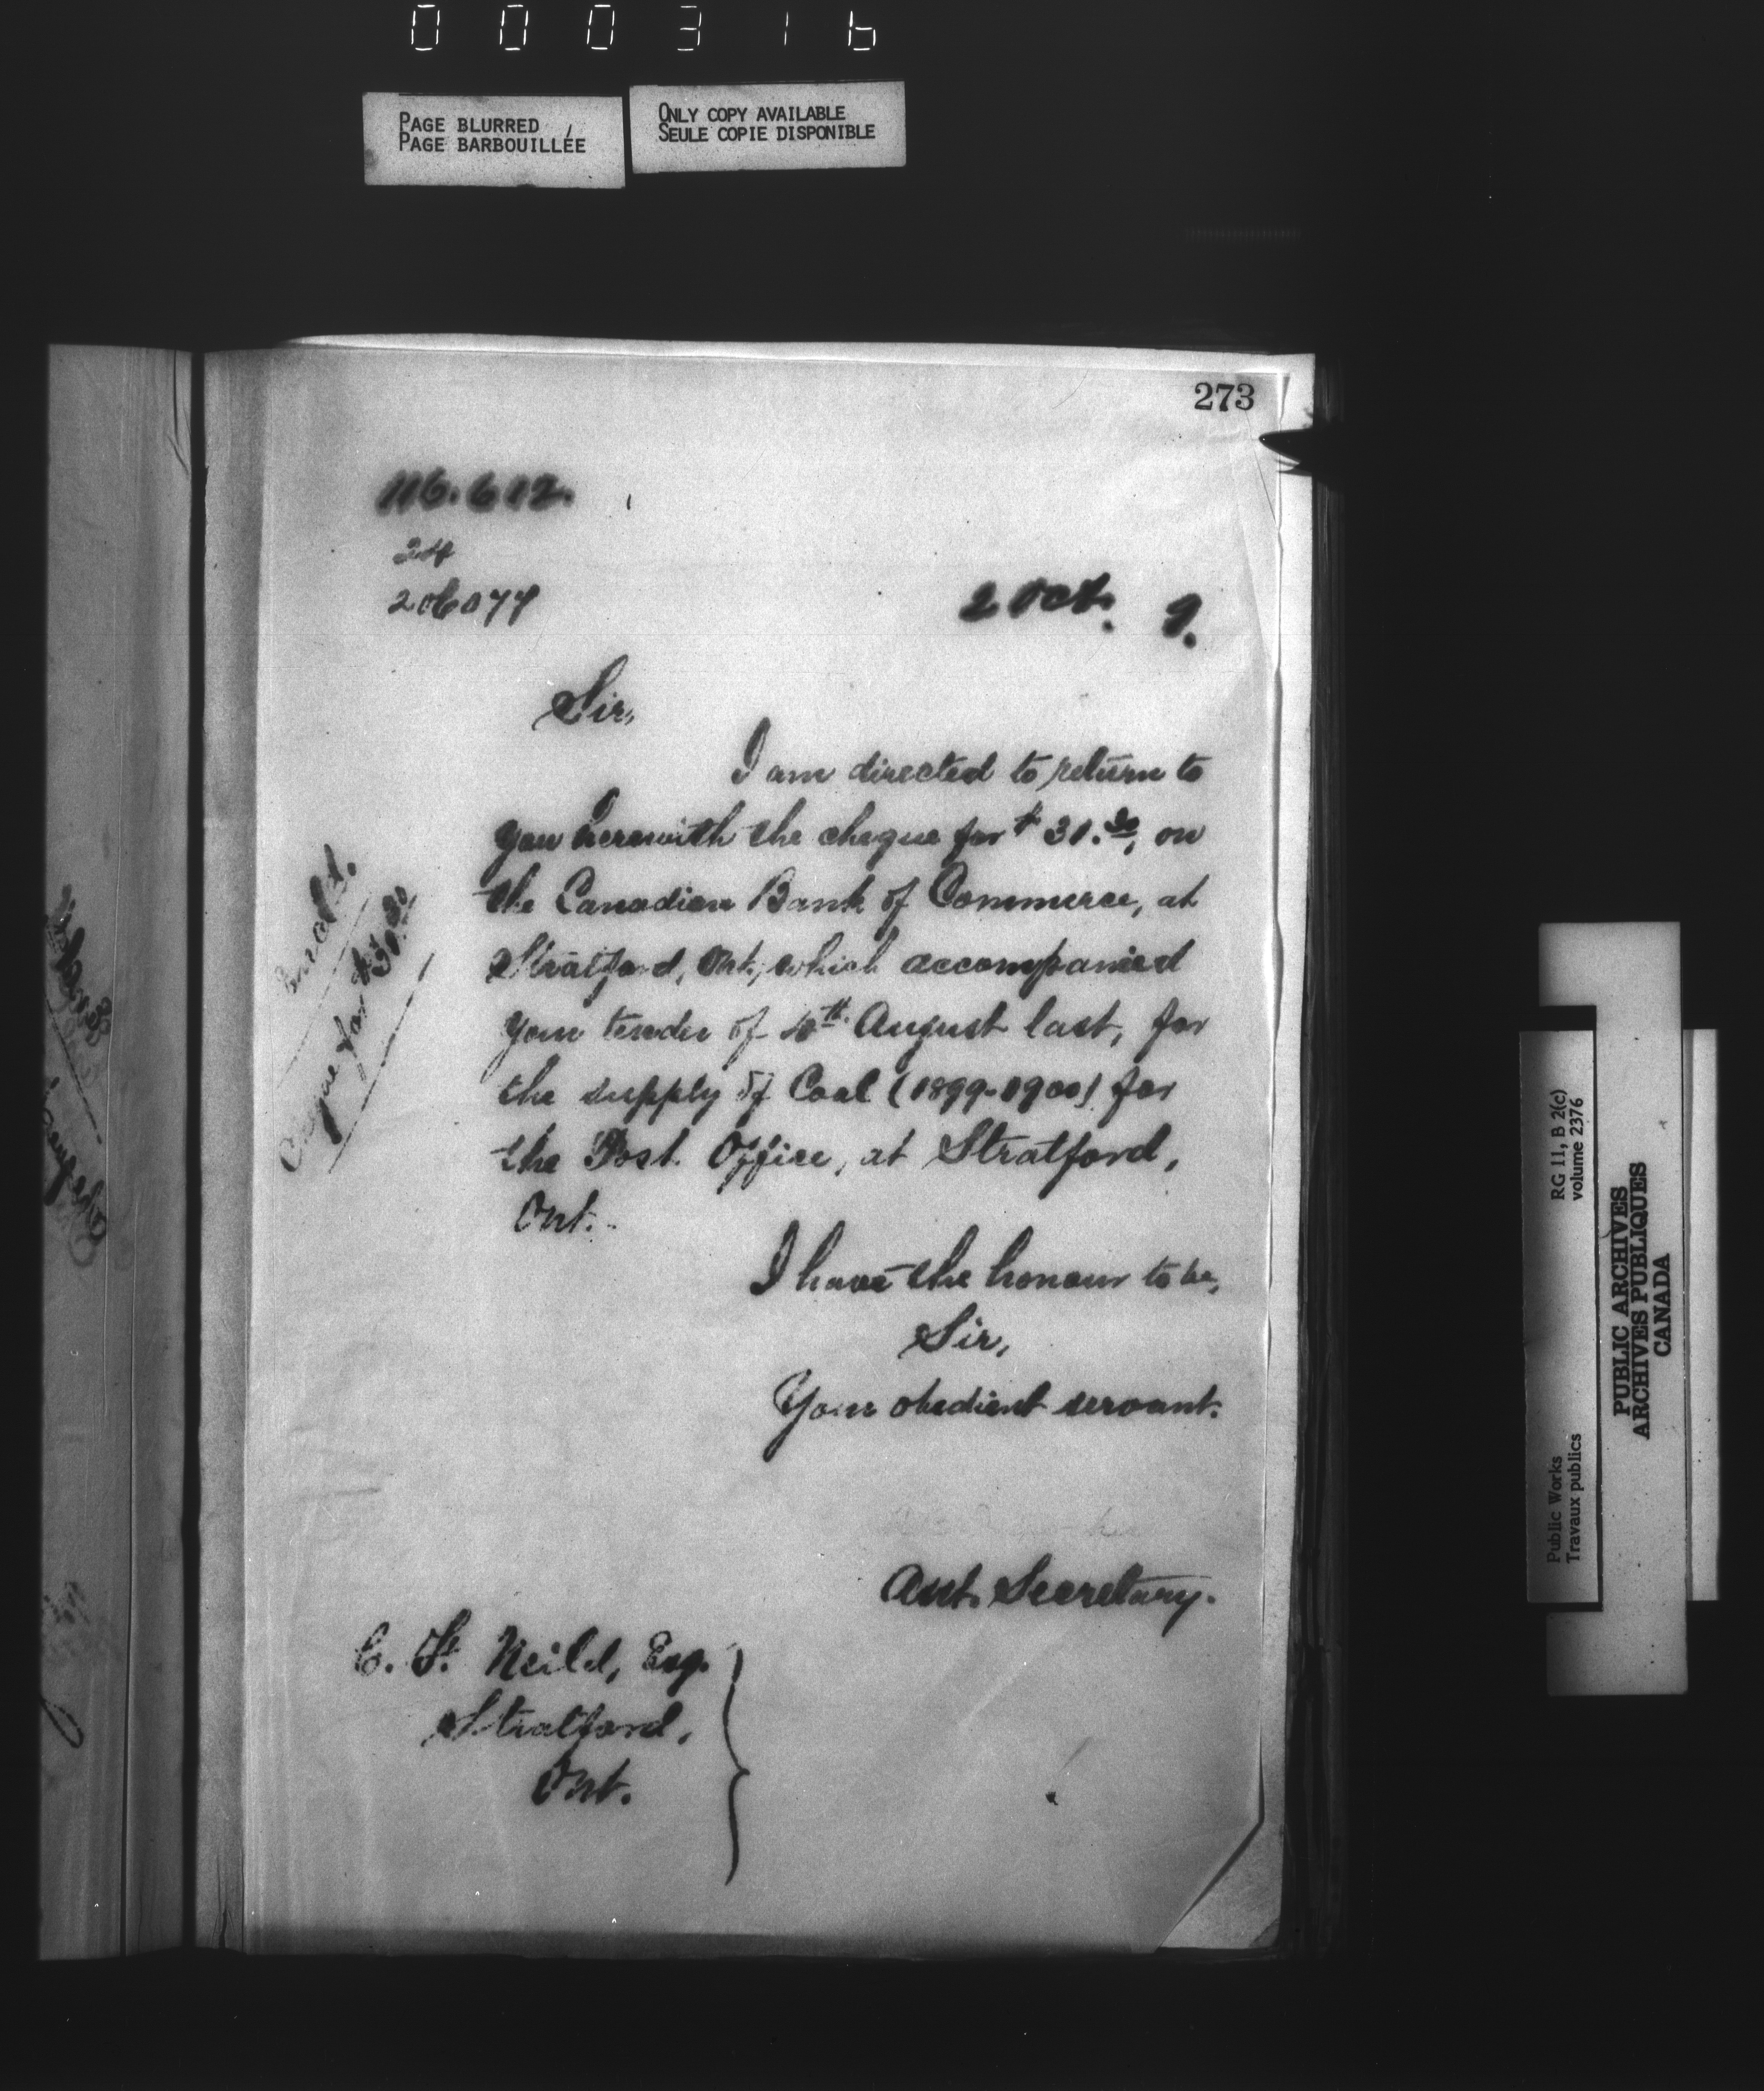 000316
PAGE BLURRED
PAGE BARBOUILLÉE
ONLY COPY AVAILABLE
SEULE COPIE DISPONIBLE
273
116.612.
24
206077
2 Oct. 9.
Sir,
I am directed to return to
you herewith the cheque for $ 30.30, on
the Canadian Bank of Commerce, at
Stratford, Ont., which accompanied
your tender of 10th August last, for
the supply of Coal (1899-1900) for
the Post Office, at Stratford,
Ont.
I have the honour to be,
Sir,
Your obedient servant.
Asst. Secretary.
C. St. Neild, Esq.
Stratford,
Ont.
Cheque for $30.30
RG 11, B 2(c)
volume 2376
Public Works
Travaux publics
PUBLIC ARCHIVES
ARCHIVES PUBLIQUES
CANADA